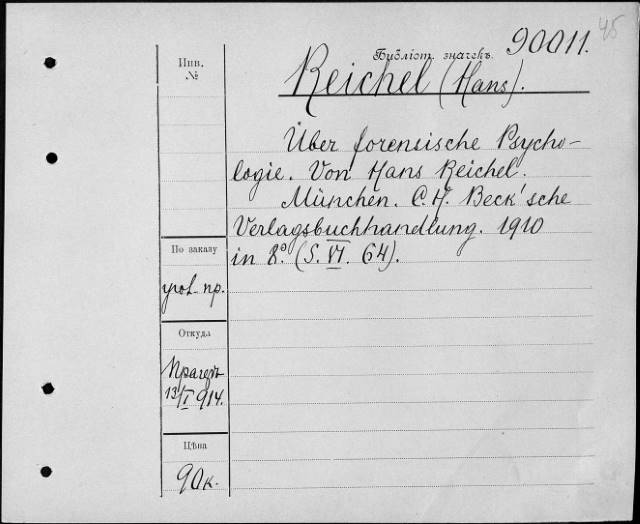 45
Библіот. значекъ. 90011.
Инв.
№
Reichel (Hans).
Über forensische Psycho-
logie. Von Hans Reichel.
München. C.H. Beck'sche
Verlagsbuchhandlung. 1910
in 8º. (S. VI. 64).
По заказу
угол. пр.
Откуда
Прагеръ
13/I 914.
Цѣна
90 к.